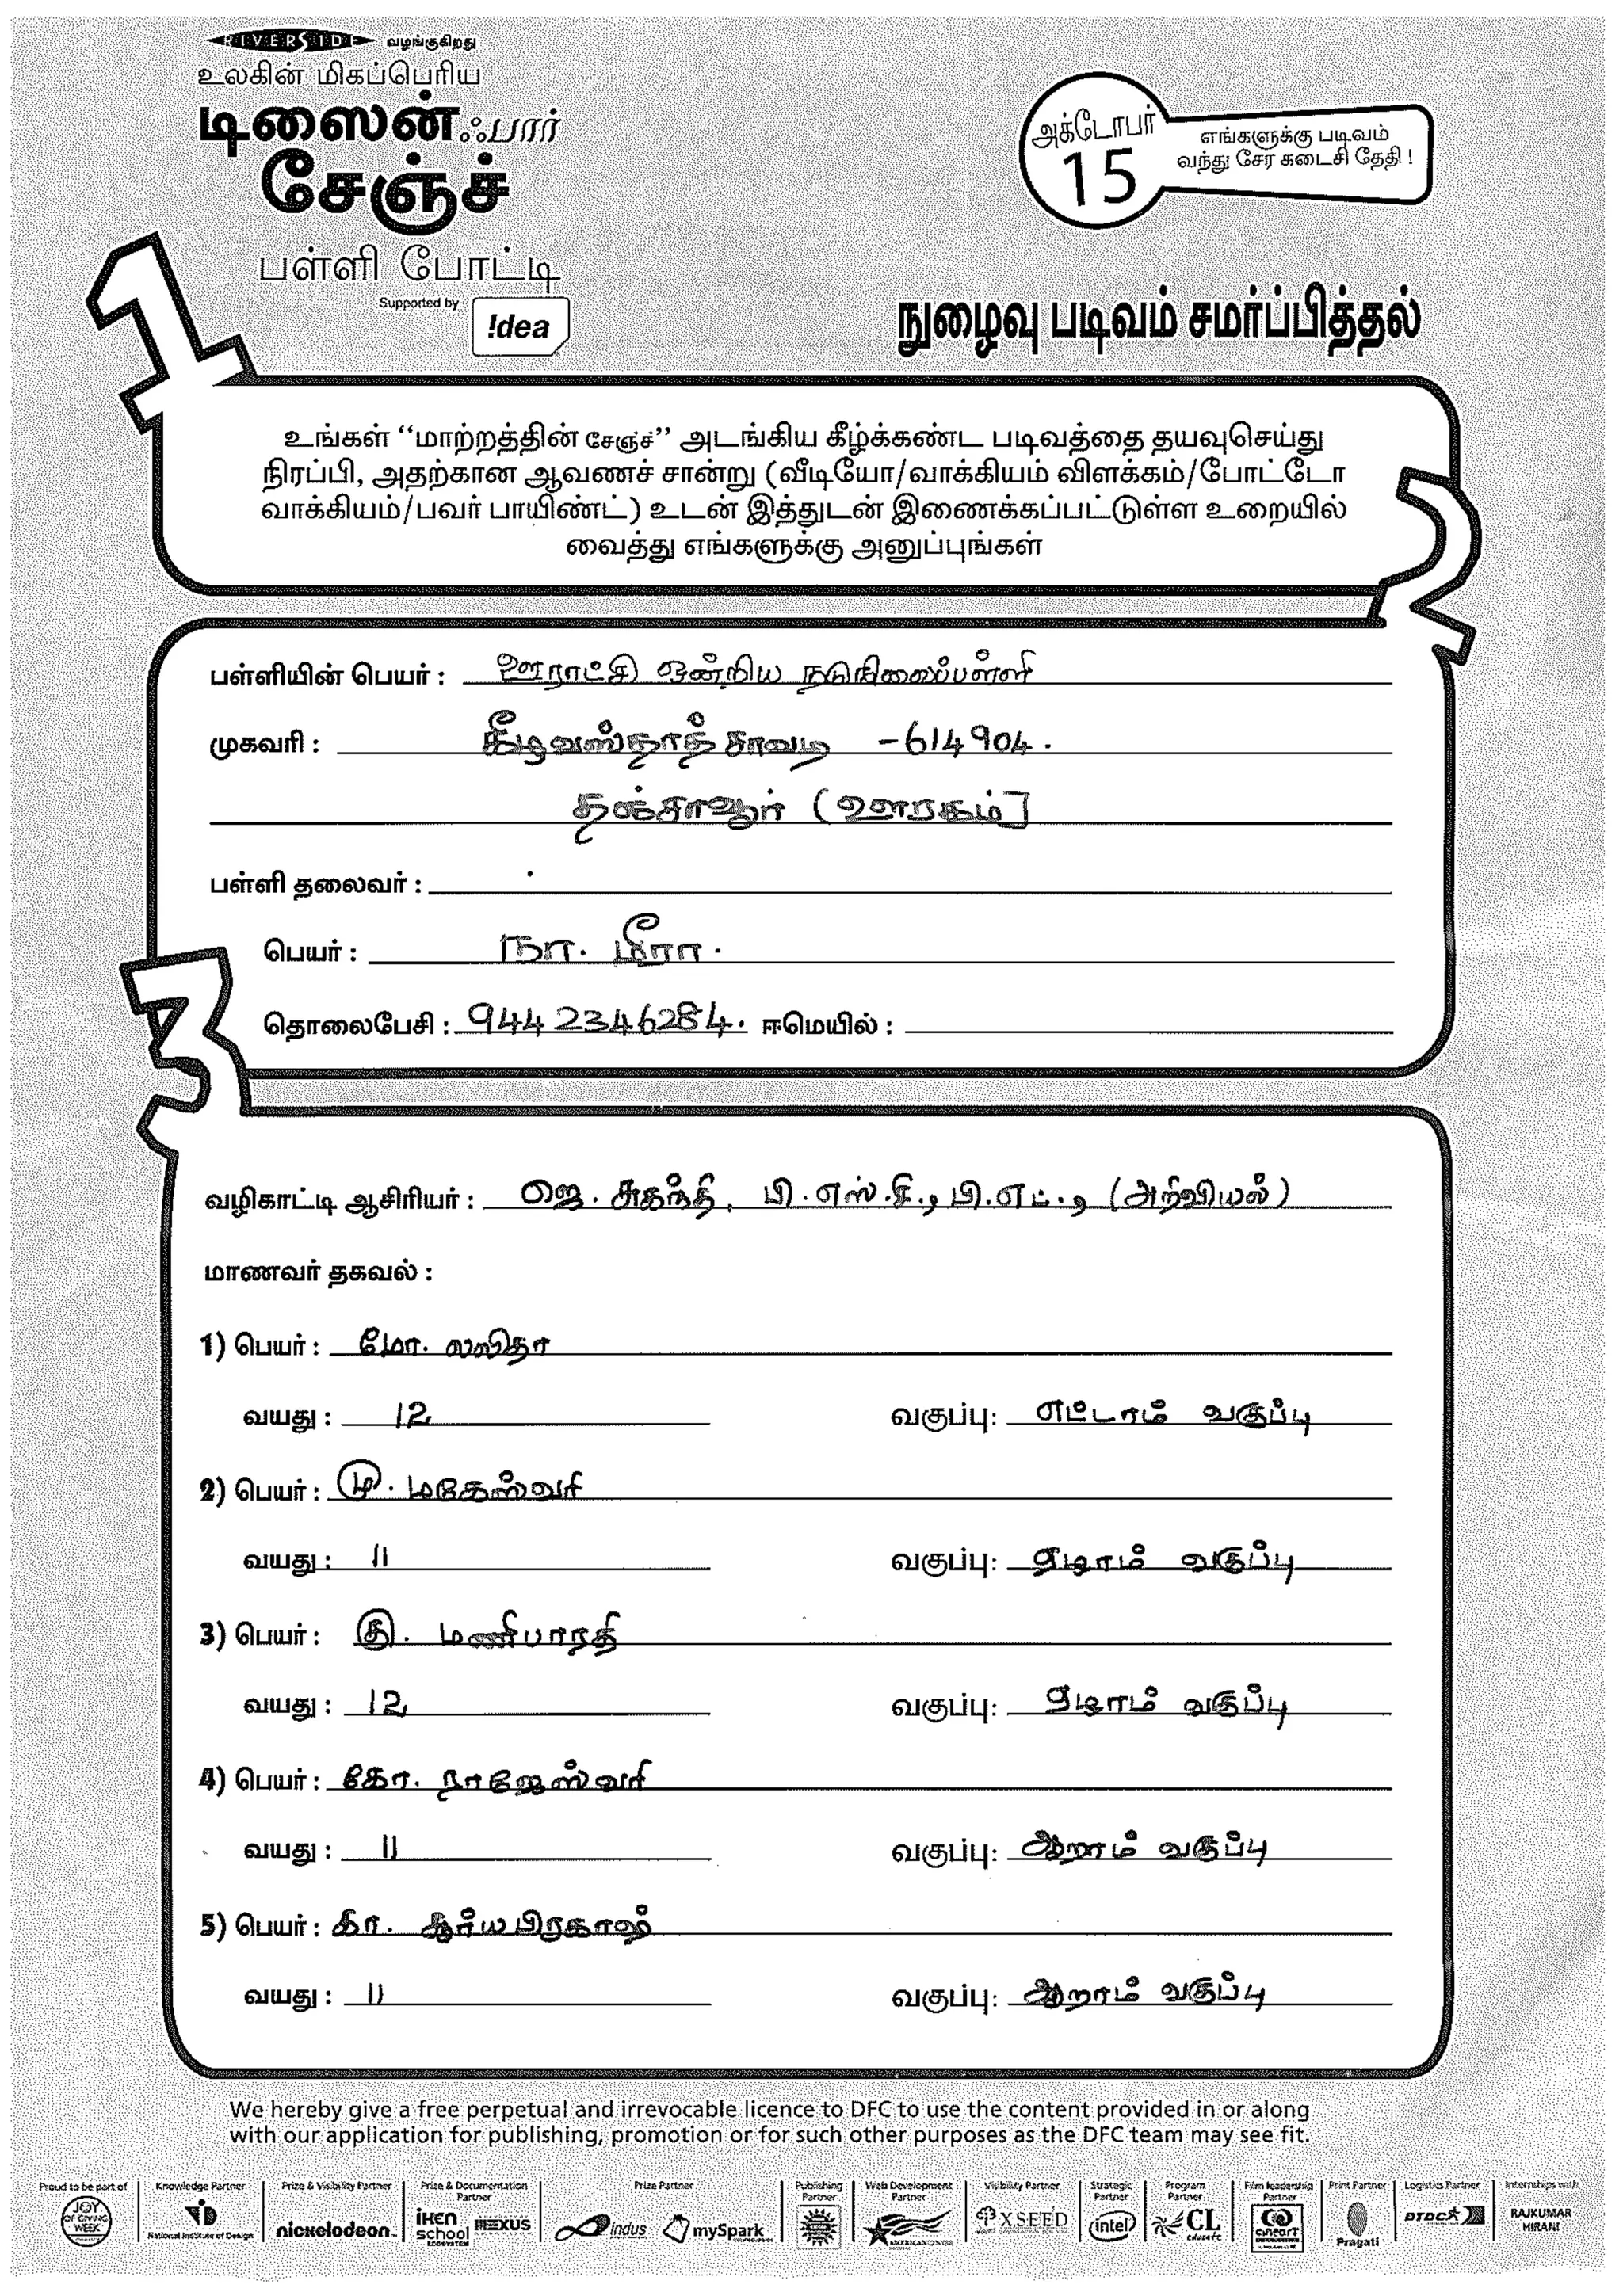 RIVERSIDE வழங்குகிறது
உலகின் மிகப்பெரிய
டிஸைன் ஃபார்
சேஞ்ச்
பள்ளி போட்டி
Supported by !dea
அக்டோபர்
15
எங்களுக்கு படிவம்
வந்து சேர கடைசி தேதி !
நுழைவு படிவம் சமர்ப்பித்தல்
1
உங்கள் “மாற்றத்தின் சேஞ்ச்” அடங்கிய கீழ்க்கண்ட படிவத்தை தயவுசெய்து
நிரப்பி, அதற்கான ஆவணச் சான்று (வீடியோ/வாக்கியம் விளக்கம்/போட்டோ
வாக்கியம்/பவர் பாயிண்ட்) உடன் இத்துடன் இணைக்கப்பட்டுள்ள உறையில்
வைத்து எங்களுக்கு அனுப்புங்கள்
2
பள்ளியின் பெயர் : ஊராட்சி ஒன்றிய நடுநிலைப்பள்ளி
முகவரி : கீழவஸ்தாத் சாவடி -614904.
தஞ்சாவூர் (ஊரகம்]
பள்ளி தலைவர் :
பெயர் : நா. மீரா.
தொலைபேசி : 9442346284. ஈமெயில் :
3
வழிகாட்டி ஆசிரியர் : ஜெ. சுகந்தி, பி.எஸ்.சி., பி.எட்., (அறிவியல்)
மாணவர் தகவல் :
1) பெயர் : மோ. லலிதா
வயது : 12 வகுப்பு: எட்டாம் வகுப்பு
2) பெயர் : மு. மகேஸ்வரி
வயது : 11 வகுப்பு: ஏழாம் வகுப்பு
3) பெயர் : தி. மணிபாரதி
வயது : 12 வகுப்பு: ஏழாம் வகுப்பு
4) பெயர் : கோ. ராஜேஸ்வரி
வயது : 11 வகுப்பு: ஆறாம் வகுப்பு
5) பெயர் : கா. சூர்யபிரகாஷ்
வயது : 11 வகுப்பு: ஆறாம் வகுப்பு
We hereby give a free perpetual and irrevocable licence to DFC to use the content provided in or along
with our application for publishing, promotion or for such other purposes as the DFC team may see fit.
Proud to be part of JOY OF GIVING WEEK
Knowledge Partner National Institute of Design
Prize & Visibility Partner nickelodeon
Prize & Documentation Partner iKEN school NEXUS
Prize Partner indus mySpark
Publishing Partner
Web Development Partner
Visibility Partner XSEED
Strategic Partner intel
Program Partner CL educate
Film leadership Partner cineart
Print Partner Pragati
Logistics Partner DTDC
Internships with RAJKUMAR HIRANI